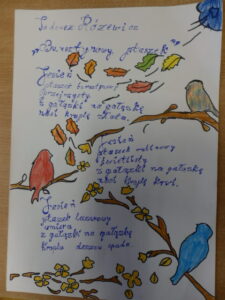 Tadeusz Różewicz
„Bursztynowy ptaszek"
Jesień
ptaszek bursztynowy
przejrzysty
z gałązki na gałązkę
nosi kroplę złota.
Jesień
ptaszek rubinowy
świetlisty
z gałązki na gałązkę
nosi kroplę krwi.
Jesień
ptaszek lazurowy
umiera
z gałązki na gałązkę
kropla deszczu spada.